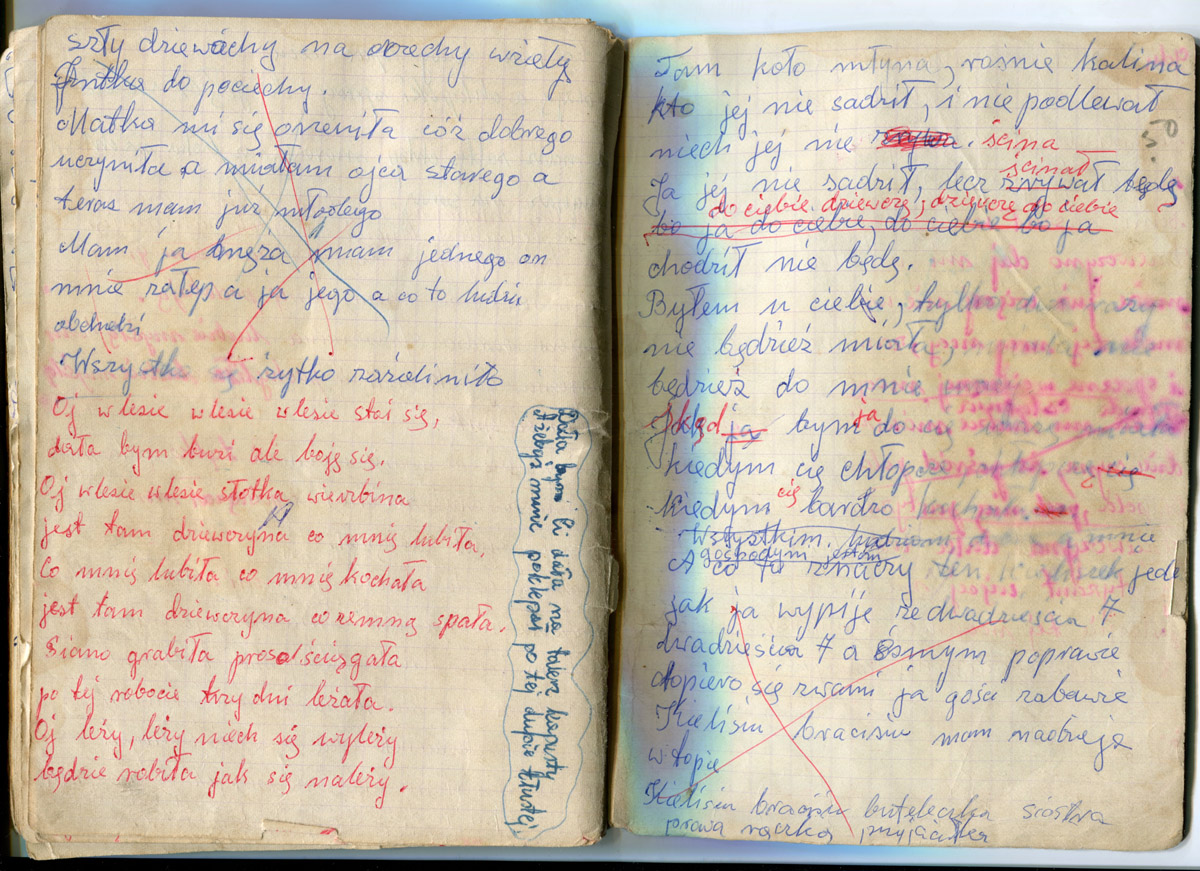 szły dziewachy na orzechy wzięły
Jantka do pociechy.
Matka mi się ożeniła cóż dobrego
uczyniła a miałam ojca starego a
teras mam już młodego
Mam ja męża mam jednego on
mnie załep a ja jego a co to ludzi
obchodzi
Wszystko żytko zazieliniło
Oj w lesie w lesie w lesie stoi się,
dała bym buzi ale boję się.
Oj w lesie w lesie słotka wierzbina
jest tam dzieworzyna co mnię lubiła,
Co mnię lubiła co mnię kochała
jest tam dzieworzyna co zemną spała.
Siano grabiła proso ściągała
po tej robocie trzy dni leżała.
Oj leży, leży niech się wyleży
będzie robiła jak się należy.
Dała bym ci dała na talerz kapusty
żebyś mnie poklepał po tej dupie tłustej.
Tam koło młyna, rośnie kalina
kto jej nie sadził, i nie podlewał
niech jej nie ścina
ścinał
Ja jej nie sadził, lecz zrywał będę
do ciebie dziewcze, dziewczę do ciebie
bo ja do ciebie, do ciebie bo ja
chodził nie będę.
Byłem u ciebie, tylko
nie będzież miała,
będziesz do mnie
ja bym ja do cię
kiedym cię chłopcze
kiedym cię bardzo kochała
Wszystkim
gospodym jestem
A co to znaczy ten kieliszek jeden
jak ja wypije ze dwadzieścia 7
dwadzieścia 7 a ósmym poprawie
dopiero się zwami ja gość zabawie
Kielisiu braciśiu mam nadzieję
w topie
Kielisiu braciśiu butęleczka siostra
prawa rączka przyjaciółka